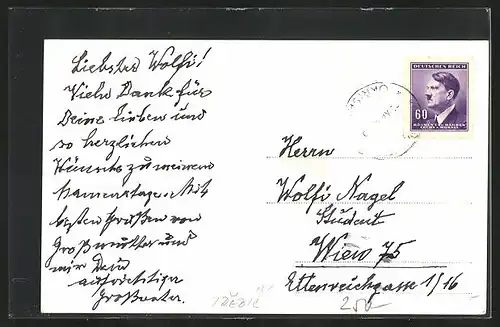 Liebster Wolfi!
Viele Dank für
Deine lieben und
so herzlichen
Wünsche zu meinem
Namenstage. Mit
besten Grüßen von
Großmutter und
mir Dein
aufrichtiger
Großvater.
DEUTSCHES REICH
60
BÖHMEN U. MÄHREN
ČECHY A MORAVA
Herrn
Wolfi Nagel
Student
Wien 75
Ettenreichgasse 1/16